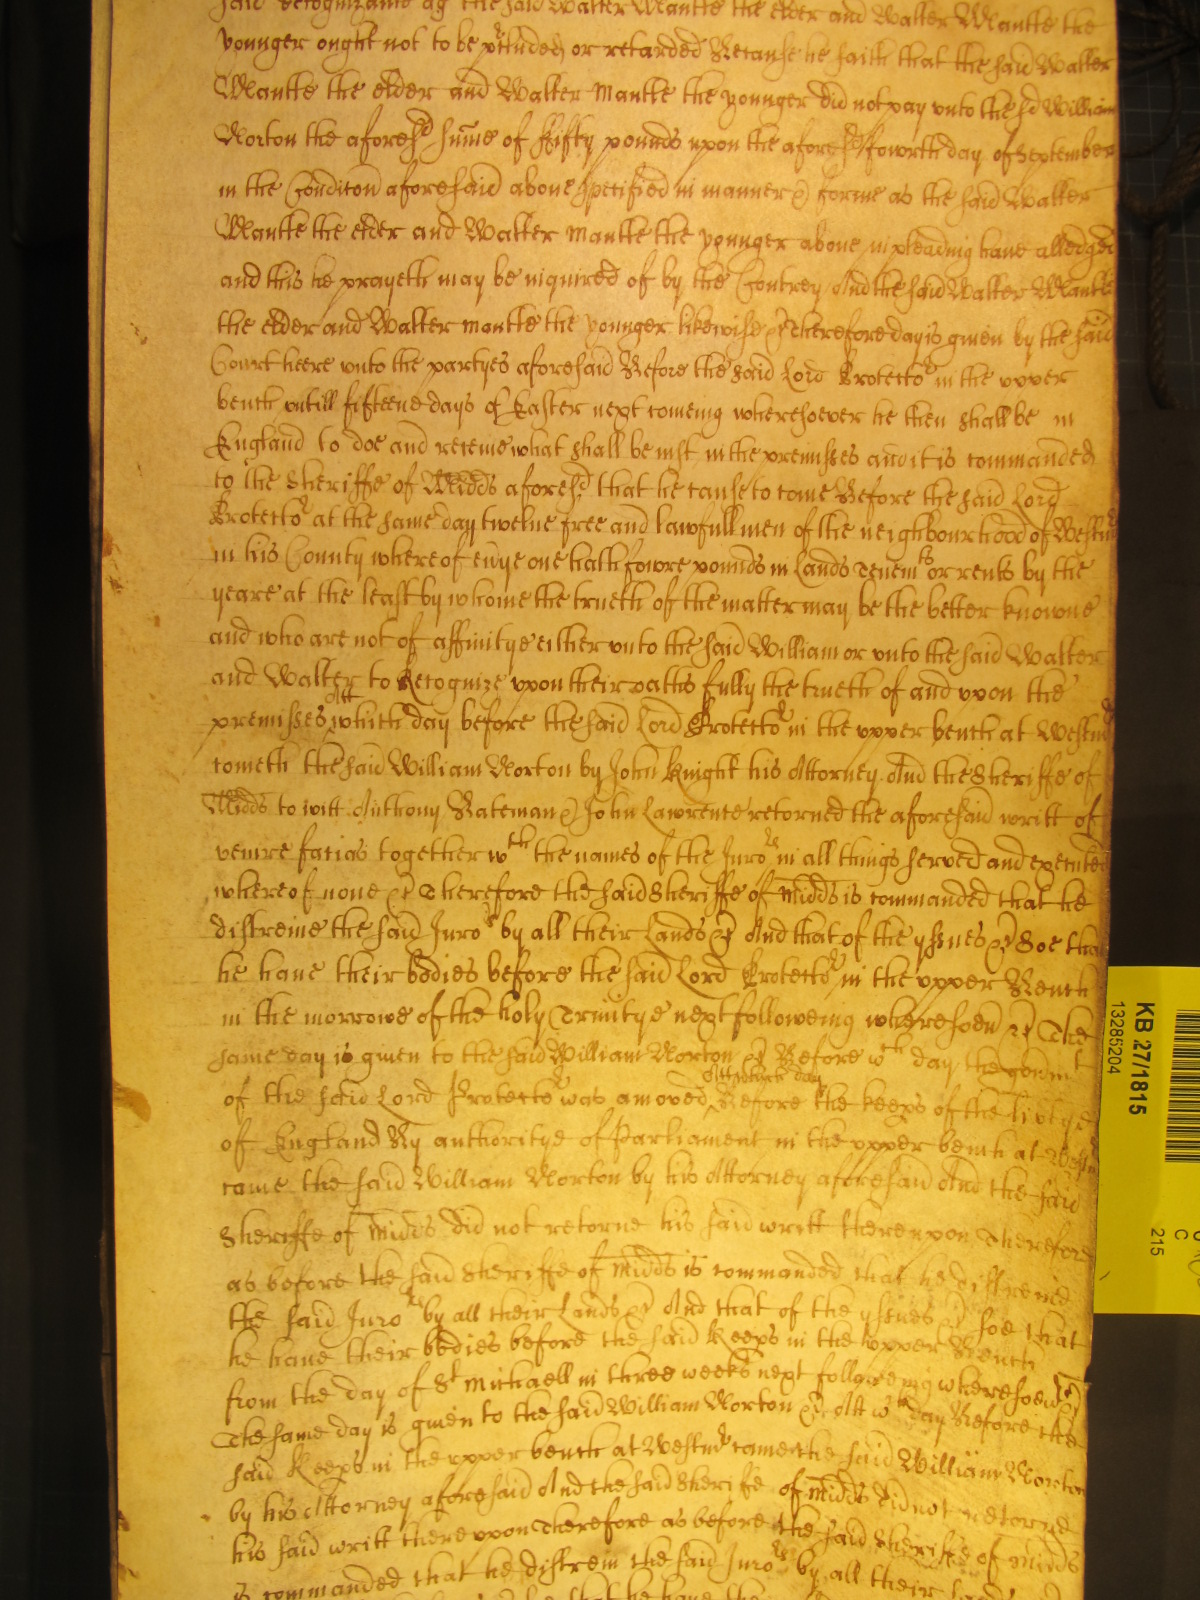 said Recognizance ag the said Walter Mantle the elder and Walter Mantle the
younger ought not to be p'cluded or retarded Because he saith that the said Walter
Mantle the elder and Walter Mantle the younger did not pay unto the sd William
Norton the aforesd sume of Fifty pounds upon the aforesd fowrth day of September
in the Condicon aforesaid above specified in manner & forme as the said Walter
Mantle the elder and Walter Mantle the younger above in pleading have alledged
and this he prayeth may be inquired of by the Contrey And the said Walter Mantle
the elder and Walter Mantle the younger likewise &c Therefore day is given by the said
Court heere unto the partyes aforesaid Before the said Lord Protector in the upper
bench untill fifteene days of Easter next comeing wheresoever he then shall be in
England to doe and receive what shall be iust in the premisses and it is commanded
to the Sheriffe of Midds aforesd that he cause to come Before the said Lord
Protector at the same day twelve free and lawfull men of the neighbourhood of Westmr
in his County whereof eu'ye one hath fowre pounds in Lands Tenemts or rents by the
yeare at the least by whome the trueth of the matter may be the better knowne
and who are not of affinitye either unto the said William or unto the said Walter
and Walter to Recognize upon their oaths fully the trueth of and upon the
premisses Att which day before the said Lord Protector in the upper bench at Westmr
cometh the said William Norton by John Knight his Attorney And the Sheriffe of
Midds to witt Anthony Bateman & John Lawrence retorned the aforesaid writt of
venire facias together wth the names of the Juro'rs in all things served and executed
whereof none &c Therefore the said Sheriffe of Midds is commanded that he
distreine the said Juro'rs by all their Lands &c And that of the yssues &c Soe that
he have their bodies before the said Lord Protector in the upper Bench
in the morrowe of the holy Trinitye next followeing wheresoeu' &c The
same day is given to the said William Norton &c Before wch day the gou'mt
of the said Lord Protector was amoved Att which day Before the Keep's of the lib'tye
of England By authoritye of Parliament in the upper bench at Westmr
came the said William Norton by his Attorney aforesaid And the said
Sheriffe of Midds did not retorne his said writt thereupon Therefore
as before the said Sheriffe of Midds is commanded that he distreine
the said Juro'rs by all their Lands &c And that of the yssues &c soe that
he have their bodies before the said Keep's in the upper Bench
from the day of St Michaell in three weeks next followeing wheresoeu' &c
The same day is given to the said William Norton &c Att wch day Before the
said Keep's in the upper bench at Westmr came the said William Norton
by his Attorney aforesaid And the said Sheriffe of Midds did not retorne
his said writt thereupon Therefore as before the said Sheriffe of Midds
is commanded that he distrein the said Juro'rs by all their Lands
that he have the
KB 27/1815
13285204
215
C